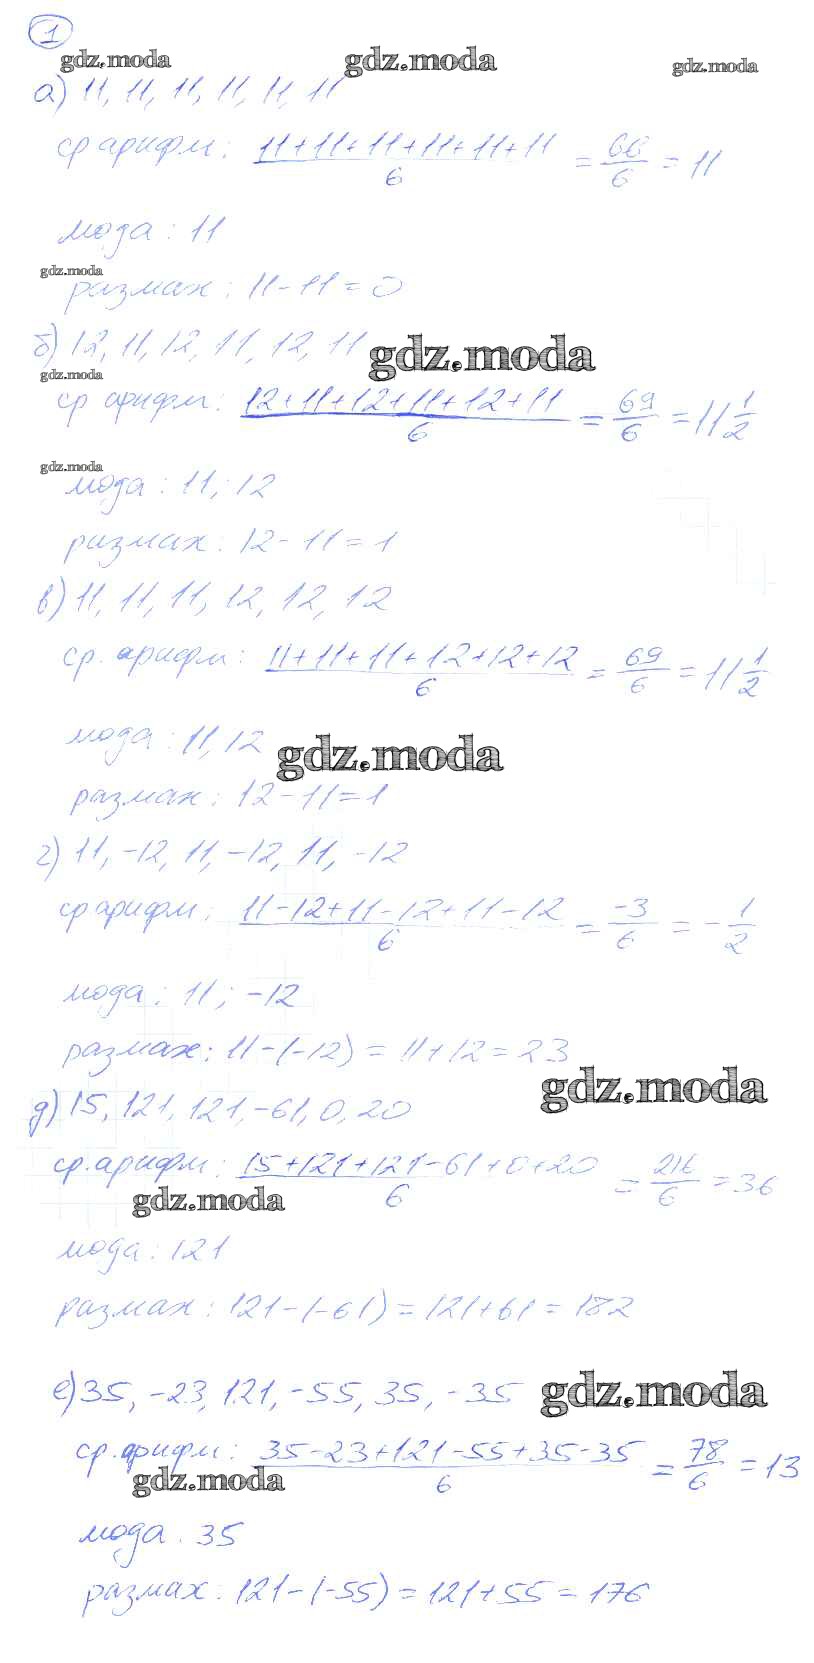 1
gdz.moda gdz.moda gdz.moda
а) 11, 11, 11, 11, 11, 11
ср арифм: (11+11+11+11+11+11)/6 = 66/6 = 11
мода: 11
gdz.moda
размах: 11-11=0
б) 12, 11, 12, 11, 12, 11
gdz.moda
gdz.moda
ср арифм: (12+11+12+11+12+11)/6 = 69/6 = 11 1/2
gdz.moda
мода: 11; 12
размах: 12-11=1
в) 11, 11, 11, 12, 12, 12
ср. арифм: (11+11+11+12+12+12)/6 = 69/6 = 11 1/2
мода: 11, 12
gdz.moda
размах: 12-11=1
г) 11, -12, 11, -12, 11, -12
ср арифм: (11-12+11-12+11-12)/6 = -3/6 = -1/2
мода: 11; -12
размах: 11-(-12)=11+12=23
gdz.moda
д) 15, 121, 121, -61, 0, 20
ср. арифм: (15+121+121-61+0+20)/6 = 216/6 = 36
gdz.moda
мода: 121
размах: 121-(-61)=121+61=182
е) 35, -23, 121, -55, 35, -35
gdz.moda
ср. арифм: (35-23+121-55+35-35)/6 = 78/6 = 13
gdz.moda
мода. 35
размах: 121-(-55)=121+55=176